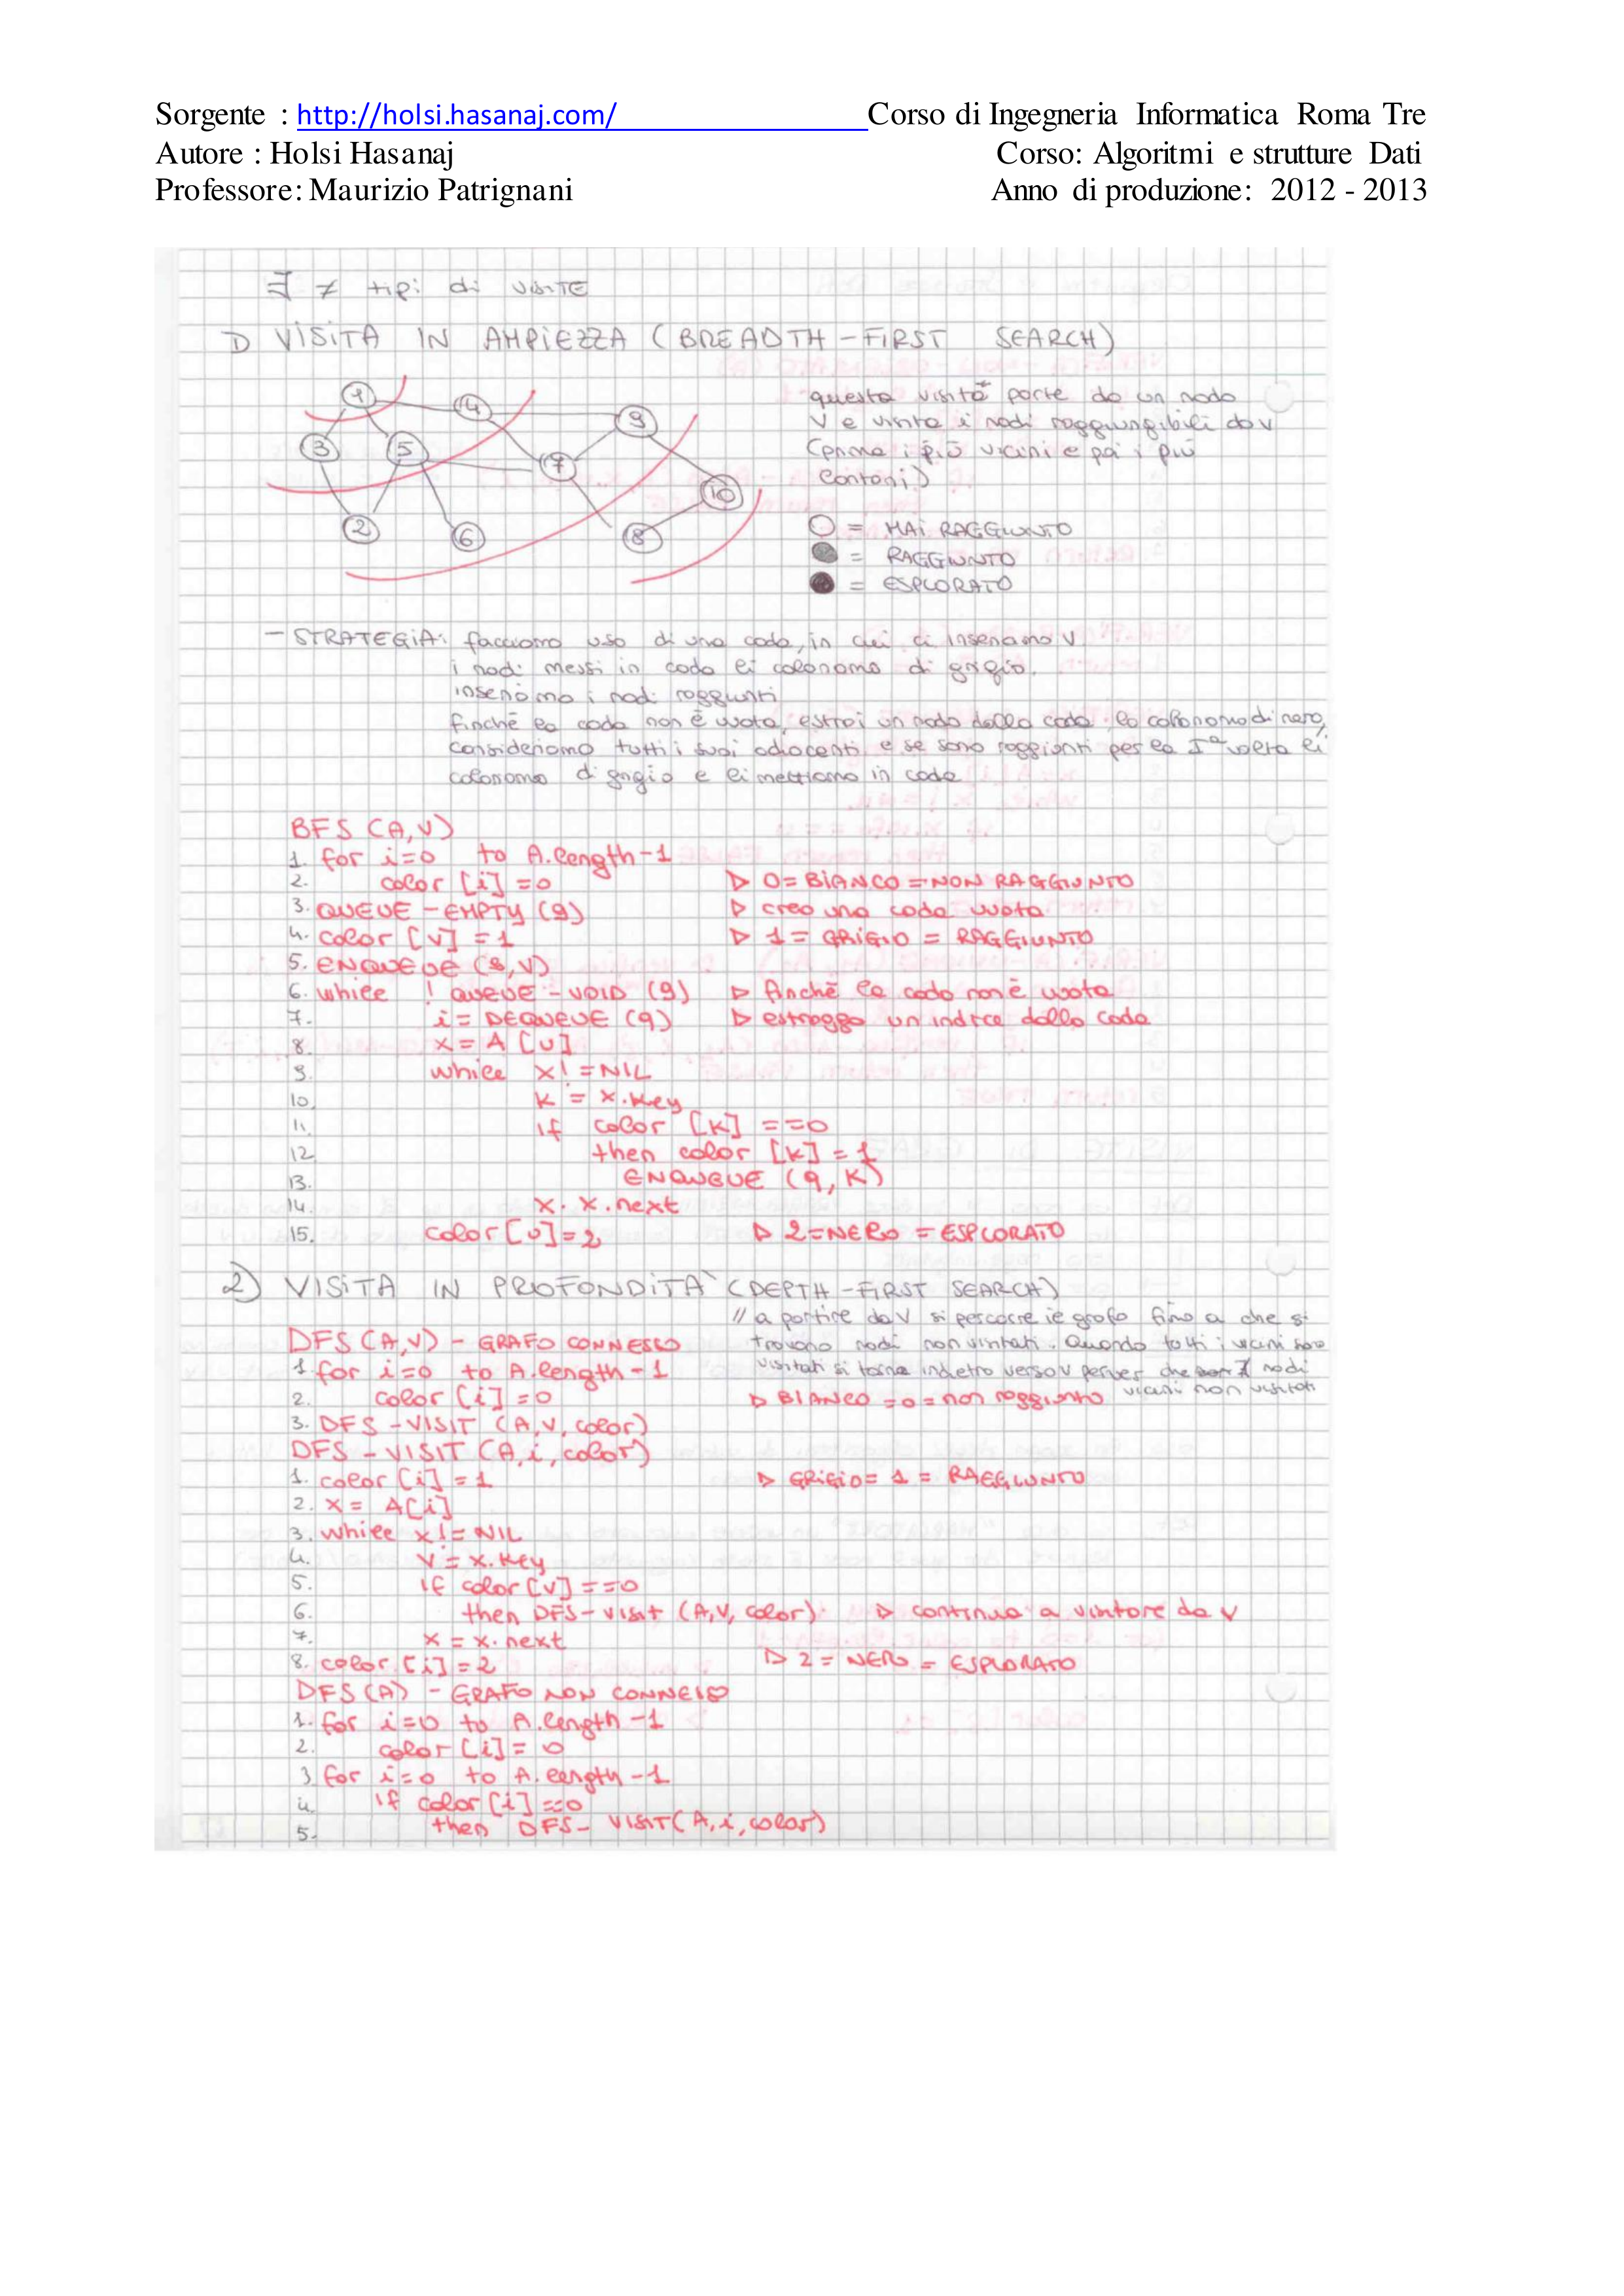 Sorgente : http://holsi.hasanaj.com/ Corso di Ingegneria Informatica Roma Tre
Autore : Holsi Hasanaj Corso: Algoritmi e strutture Dati
Professore: Maurizio Patrignani Anno di produzione: 2012 - 2013
∃ ≠ tipi di visite
1) VISITA IN AMPIEZZA (BREADTH-FIRST SEARCH)
1 4 9
3 5 7
10
2 6 8
questa visita parte da un nodo
V e visita i nodi raggiungibili da v
(prima i più vicini e poi i più
lontani)
○ = MAI RAGGIUNTO
● = RAGGIUNTO
● = ESPLORATO
- STRATEGIA: facciamo uso di una coda, in cui ci inseriamo V
i nodi messi in coda li coloriamo di grigio.
inseriamo i nodi raggiunti
finchè la coda non è vuota, estrai un nodo dalla coda, lo coloriamo di nero,
consideriamo tutti i suoi adiacenti e se sono raggiunti per la Iª volta li
coloriamo di grigio e li mettiamo in coda
BFS (A,V)
1. for i=0 to A.length-1
2. color [i] =0 ▷ 0=BIANCO=NON RAGGIUNTO
3. QUEUE-EMPTY (q) ▷ creo una coda vuota
4. color [v] =1 ▷ 1= GRIGIO = RAGGIUNTO
5. ENQUEUE (q,V)
6. while ! QUEUE-VOID (q) ▷ finchè la coda non è vuota
7. i= DEQUEUE (q) ▷ estraggo un indice dalla coda
8. x= A [v]
9. while x!=NIL
10. K = x.key
11. if color [K] ==0
12 then color [K] =1
13. ENQUEUE (q,K)
14. x. x.next
15. color[v]=2 ▷ 2=NERO =ESPLORATO
2) VISITA IN PROFONDITA` (DEPTH-FIRST SEARCH)
// a partire da V si percorre il grafo fino a che si
DFS (A,V) - GRAFO CONNESSO trovano nodi non visitati. Quando tutti i vicini sono
1. for i=0 to A.length-1 visitati si torna indietro verso v che nodi
2. color [i] =0 ▷ BIANCO =0= non raggiunto vicini non visitati
3. DFS-VISIT (A,V,color)
DFS-VISIT (A,i,color)
1. color [i] =1 ▷ GRIGIO= 1 = RAGGIUNTO
2. x= A[i]
3. while x!=NIL
4. V = x.key
5. if color [v] ==0
6. then DFS-visit (A,V,color) ▷ continua a visitare da v
7. x = x.next
8. color [i] =2 ▷ 2 = NERO = ESPLORATO
DFS(A) - GRAFO NON CONNESSO
1. for i=0 to A.length-1
2. color [i] = 0
3 for i=0 to A.length-1
4. if color [i] ==0
5. then DFS-VISIT(A,i,color)